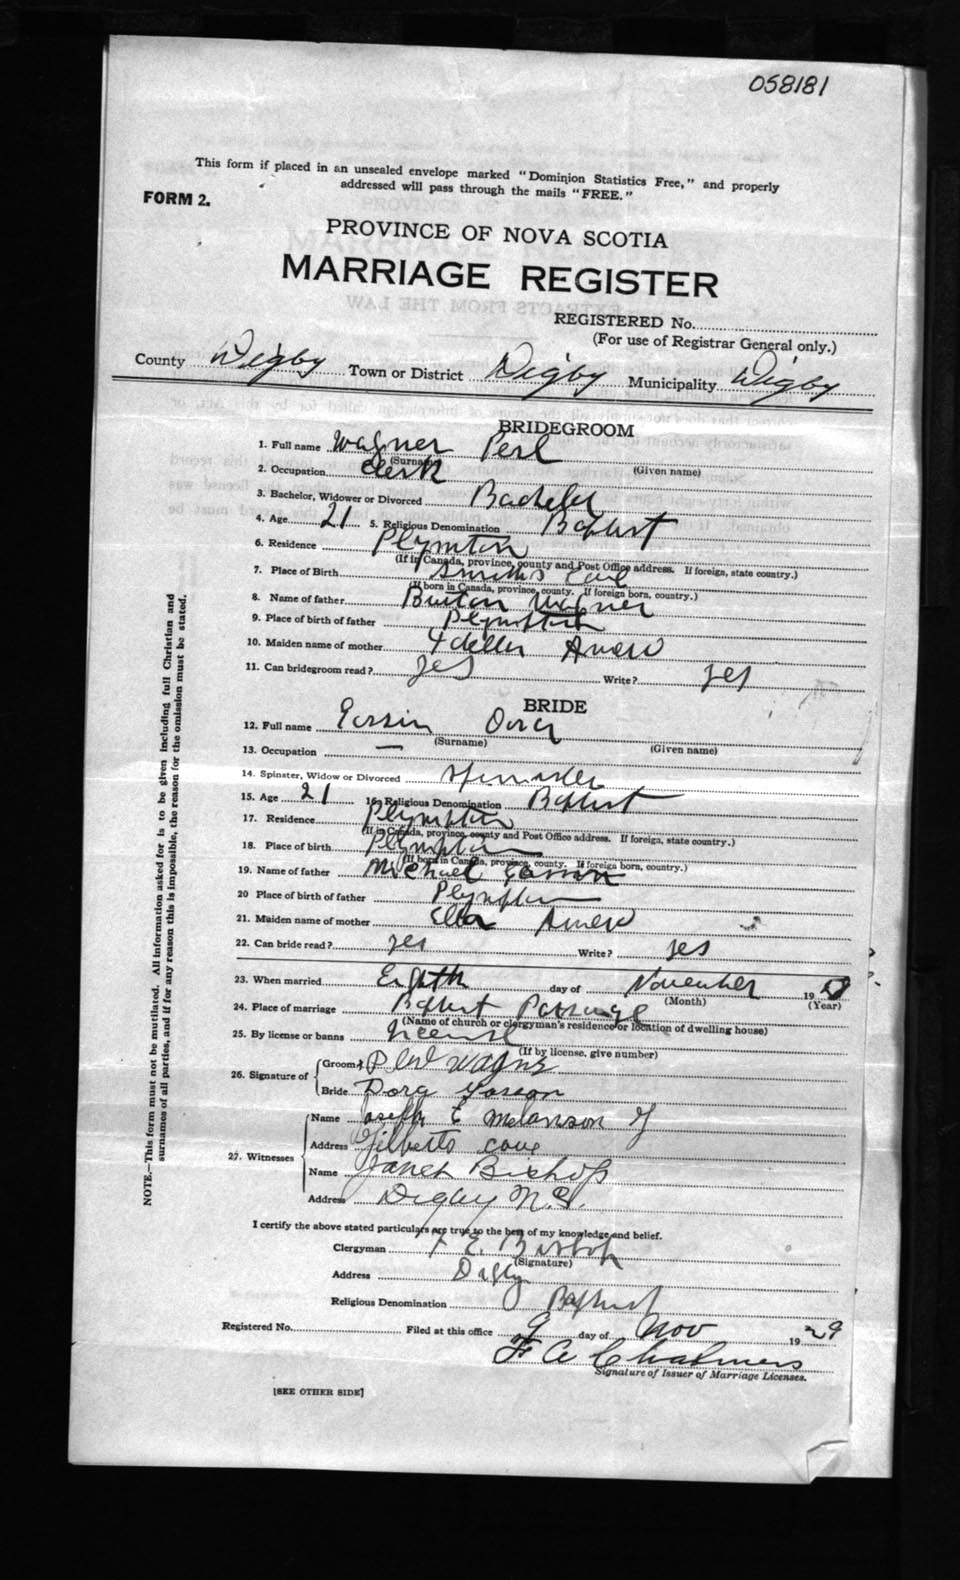 058181
This form if placed in an unsealed envelope marked "Dominion Statistics Free," and properly
addressed will pass through the mails "FREE."
FORM 2.
PROVINCE OF NOVA SCOTIA
MARRIAGE REGISTER
REGISTERED No.
(For use of Registrar General only.)
County Digby Town or District Digby Municipality Digby
BRIDEGROOM
1. Full name Wagner Perl
(Surname) (Given name)
2. Occupation Clerk
3. Bachelor, Widower or Divorced Bachelor
4. Age 21 5. Religious Denomination Baptist
6. Residence Plymton
(If in Canada, province, county and Post Office address. If foreign, state country.)
7. Place of Birth Smiths Cove
(If born in Canada, province, county. If foreign born, country.)
8. Name of father Burton Wagner
9. Place of birth of father Plympton
10. Maiden name of mother Amero
11. Can bridegroom read? yes Write? yes
BRIDE
12. Full name Dora
(Surname) (Given name)
13. Occupation —
14. Spinster, Widow or Divorced Spinster
15. Age 21 16. Religious Denomination Baptist
17. Residence Plympton
(If in Canada, province, county and Post Office address. If foreign, state country.)
18. Place of birth Plympton
(If born in Canada, province, county. If foreign born, country.)
19. Name of father Michael
20 Place of birth of father Plympton
21. Maiden name of mother Ella Amero
22. Can bride read? yes Write? yes
23. When married Eighth day of November 19
(Month) (Year)
24. Place of marriage Baptist Parsonage
(Name of church or clergyman's residence or location of dwelling house)
25. By license or banns License
(If by license, give number)
26. Signature of Groom Wagner
Bride Dora
27. Witnesses Name Joseph E Melanson
Address Gilberts cove
Name Janet Bishop
Address Digby N.S.
I certify the above stated particulars are true to the best of my knowledge and belief.
Clergyman E. Bishop
(Signature)
Address Digby
Religious Denomination Baptist
Registered No. Filed at this office 9 day of Nov 1929
F A Chalmers
Signature of Issuer of Marriage Licenses.
[SEE OTHER SIDE]
NOTE.—This form must not be mutilated. All information asked for is to be given including full Christian and
surnames of all parties, and if for any reason this is impossible, the reason for the omission must be stated.